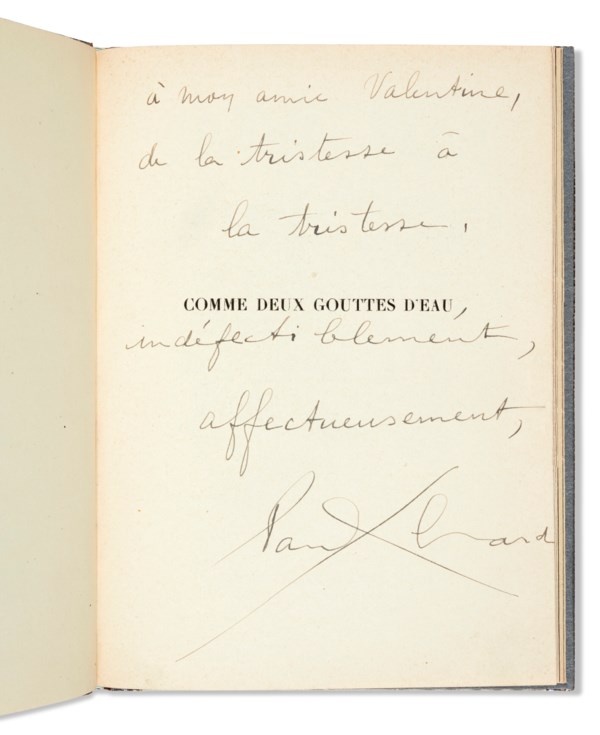 à mon amie Valentine,
de la tristesse à
la tristesse,
COMME DEUX GOUTTES D'EAU,
indéfectiblement,
affectueusement,
Paul Eluard